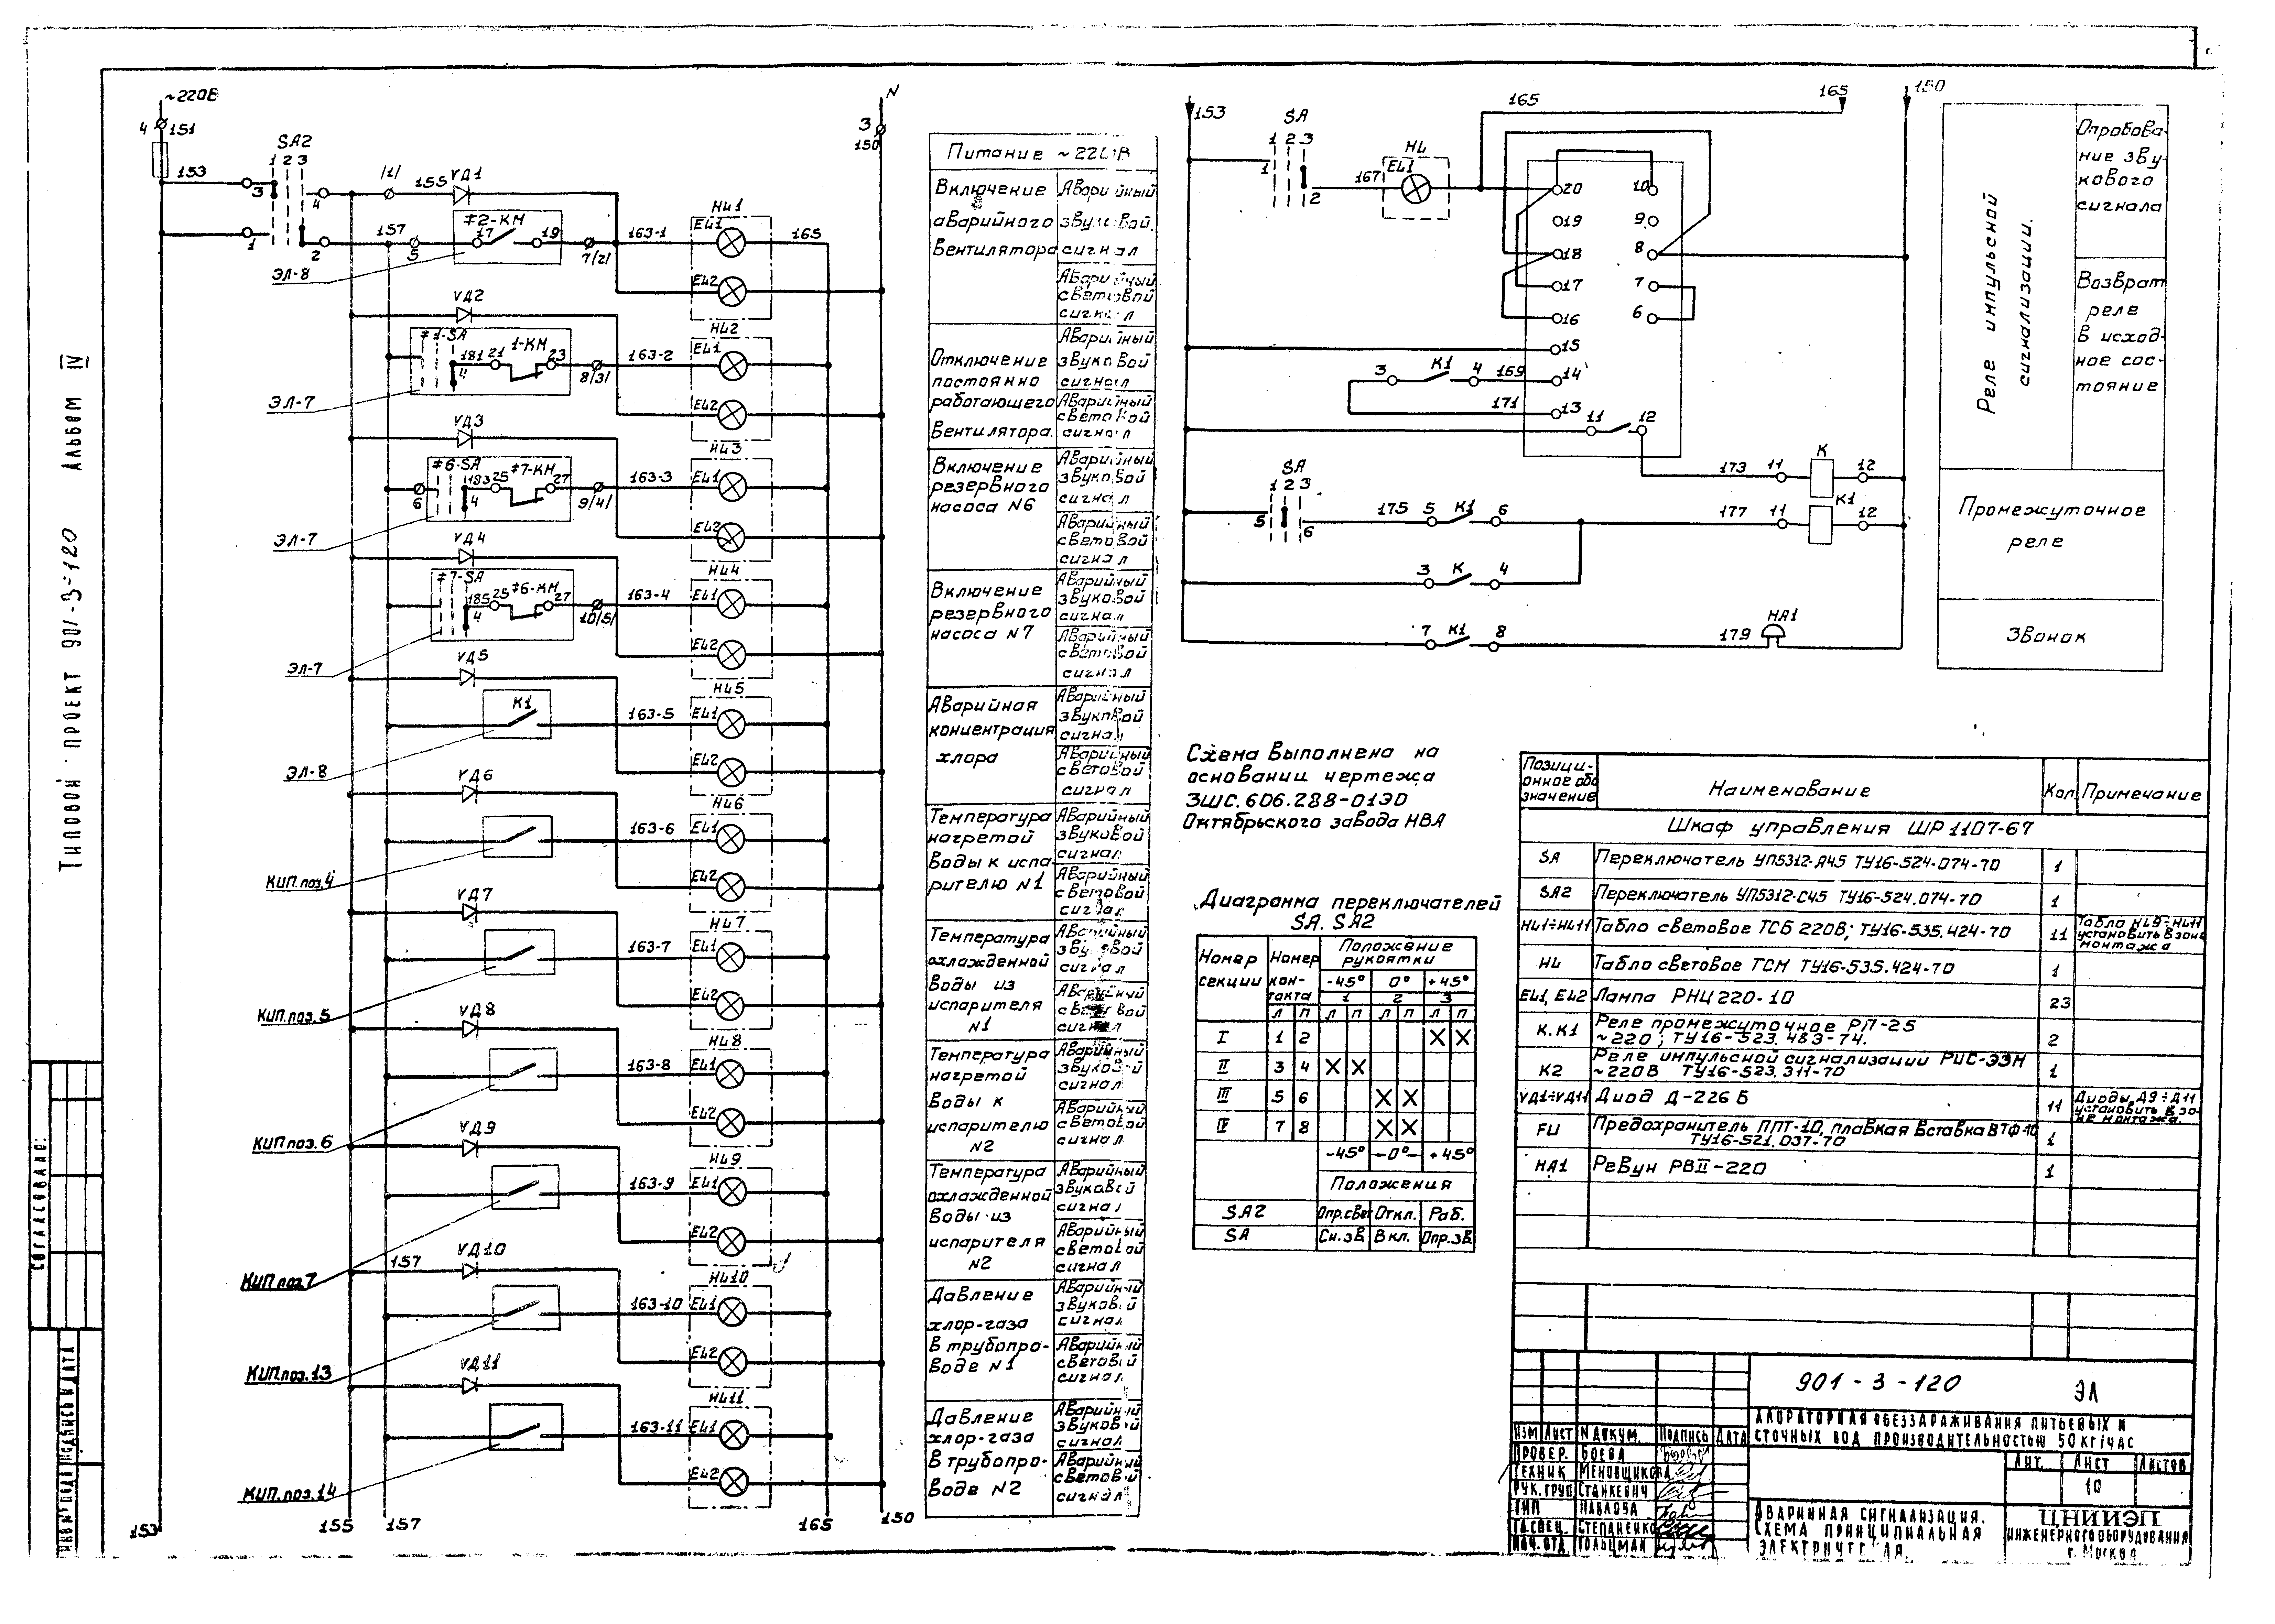 Типовой проект 901-3-120 Альбом IV
Согласовано:
~220В
4 151
153
SA2
1 2 3
3
4
1
2
/1/
155 УД1
157
5
#2-КМ
17 19
7/2/
163-1
ЭЛ-8
HL1
EL1
165
EL2
N
3
150
УД2
#1-SA
181 21 1-КМ 23
4
8/3/
163-2
ЭЛ-7
HL2
EL1
EL2
УД3
#6-SA
183 25 #7-КМ 27
4
6
9/4/
163-3
ЭЛ-7
HL3
EL1
EL2
УД4
#7-SA
185 25 #6-КМ 27
4
10/5/
163-4
ЭЛ-7
HL4
EL1
EL2
УД5
К1
163-5
ЭЛ-8
HL5
EL1
EL2
УД6
163-6
КИП. поз.4
HL6
EL1
EL2
УД7
163-7
КИП. поз.5
HL7
EL1
EL2
УД8
163-8
КИП поз.6
HL8
EL1
EL2
УД9
163-9
КИП поз7
HL9
EL1
EL2
157
УД10
163-10
КИП поз.13
HL10
EL1
EL2
УД11
163-11
КИП. поз.14
HL11
EL1
EL2
153
155
157
165
150
Питание ~220В
Включение
аварийного
вентилятора
Аварийный
звуковой
сигнал
Аварийный
световой
сигнал
Отключение
постоянно
работающего
вентилятора.
Аварийный
звуковой
сигнал
Аварийный
световой
сигнал
Включение
резервного
насоса N6
Аварийный
звуковой
сигнал
Аварийный
световой
сигнал
Включение
резервного
насоса N7
Аварийный
звуковой
сигнал
Аварийный
световой
сигнал
Аварийная
концентрация
хлора
Аварийный
звуковой
сигнал
Аварийный
световой
сигнал
Температура
нагретой
воды к испа-
рителю N1
Аварийный
звуковой
сигнал
Аварийный
световой
сигнал
Температура
охлажденной
воды из
испарителя
N1
Аварийный
звуковой
сигнал
Аварийный
световой
сигнал
Температура
нагретой
воды к
испарителю
N2
Аварийный
звуковой
сигнал
Аварийный
световой
сигнал
Температура
охлажденной
воды из
испарителя
N2
Аварийный
звуковой
сигнал
Аварийный
световой
сигнал
Давление
хлор-газа
в трубопро-
воде N1
Аварийный
звуковой
сигнал
Аварийный
световой
сигнал
Давление
хлор-газа
в трубопро-
воде N2
Аварийный
звуковой
сигнал
Аварийный
световой
сигнал
153
SA
1 2 3
1
2
167
HL
EL1
165
165
150
20 10
19 9
18 8
17 7
16 6
15
3 К1 4 169 14
171 13
11 12
173 11 К 12
SA
1 2 3
5 6
175 5 К1 6
177 11 К1 12
3 К 4
7 К1 8
179 НА1
Реле импульсной
сигнализации.
Опробова-
ние зву-
кового
сигнала
Возврат
реле
в исход-
ное сос-
тояние
Промежуточное
реле
Звонок
Схема выполнена на
основании чертежа
ЗШС.606.288-01ЭО
Октябрьского завода НВА
Диаграмма переключателей
SA. SA2
Номер секции Номер контакта Положение рукоятки
-45° 0° +45°
1 2 3
л п л п л п л п
I 1 2 X X
II 3 4 X X
III 5 6 X X
IV 7 8 X X
-45° -0°- +45°
Положения
SA2 Опр.свет Откл. Раб.
SA Сн.зв. Вкл. Опр.зв.
Позици-
онное обо
значение
Наименование Кол. Примечание
Шкаф управления ШР 1107-67
SA Переключатель УП5312-А45 ТУ16-524.074-70 1
SA2 Переключатель УП5312-С45 ТУ16-524.074-70 1
HL1÷HL11 Табло световое ТСБ 220В; ТУ16-535.424-70 11 Табло HL9÷HL11 установить в зоне монтажа
HL Табло световое ТСМ ТУ16-535.424-70 1
EL1, EL2 Лампа РНЦ 220-10 23
К.К1 Реле промежуточное РП-25
~220; ТУ16-523.483-74. 2
К2 Реле импульсной сигнализации РИС-ЭЗМ
~220В ТУ16-523.311-70 1
УД1÷УД11 Диод Д-226Б 11 Диоды Д9÷Д11 установить в зо-не монтажа.
FU Предохранитель ППТ-10, плавкая вставка ВТФ-10
ТУ16-521.037-70 1
НА1 Ревун РВII-220 1
901-3-120 ЭЛ
Хлораторная обеззараживания питьевых и
сточных вод производительностью 50 кг/час
Изм Лист N докум. Подпись Дата
Провер. Боева
Техник Меновщикова
Рук. груп Станкевич
ГИП Павлова
Гл.спец. Степаненко
Нач. отд. Гольцман
Лит. Лист Листов
10
Аварийная сигнализация.
Схема принципиальная
электрическая.
ЦНИИЭП
инженерного оборудования
г. Москва
Инв N° подл Подпись и дата